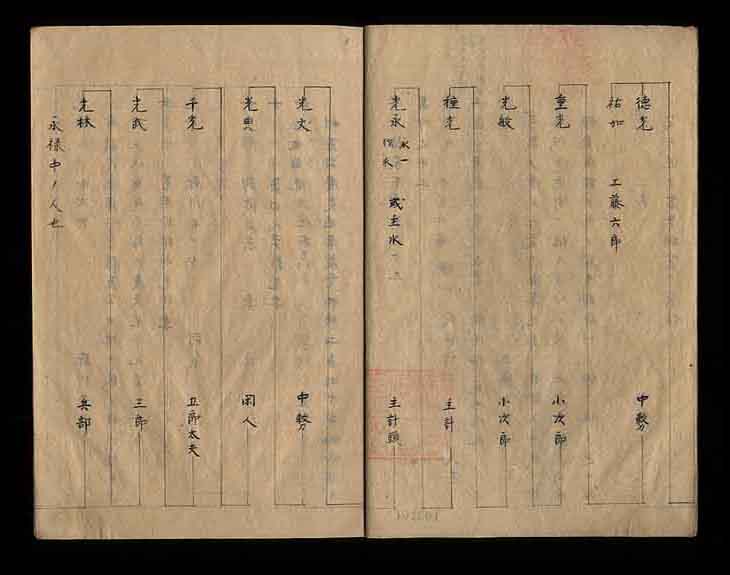 徳光 中務
祐如 工藤六郎
重光 小次郎
光敏 小次郎
種光 主計
光永 永一 或主水 主計頭
光文 中務
光典 閑人
千光 五郎太夫
光武 三郎
光林 兵部
永禄中ノ人也